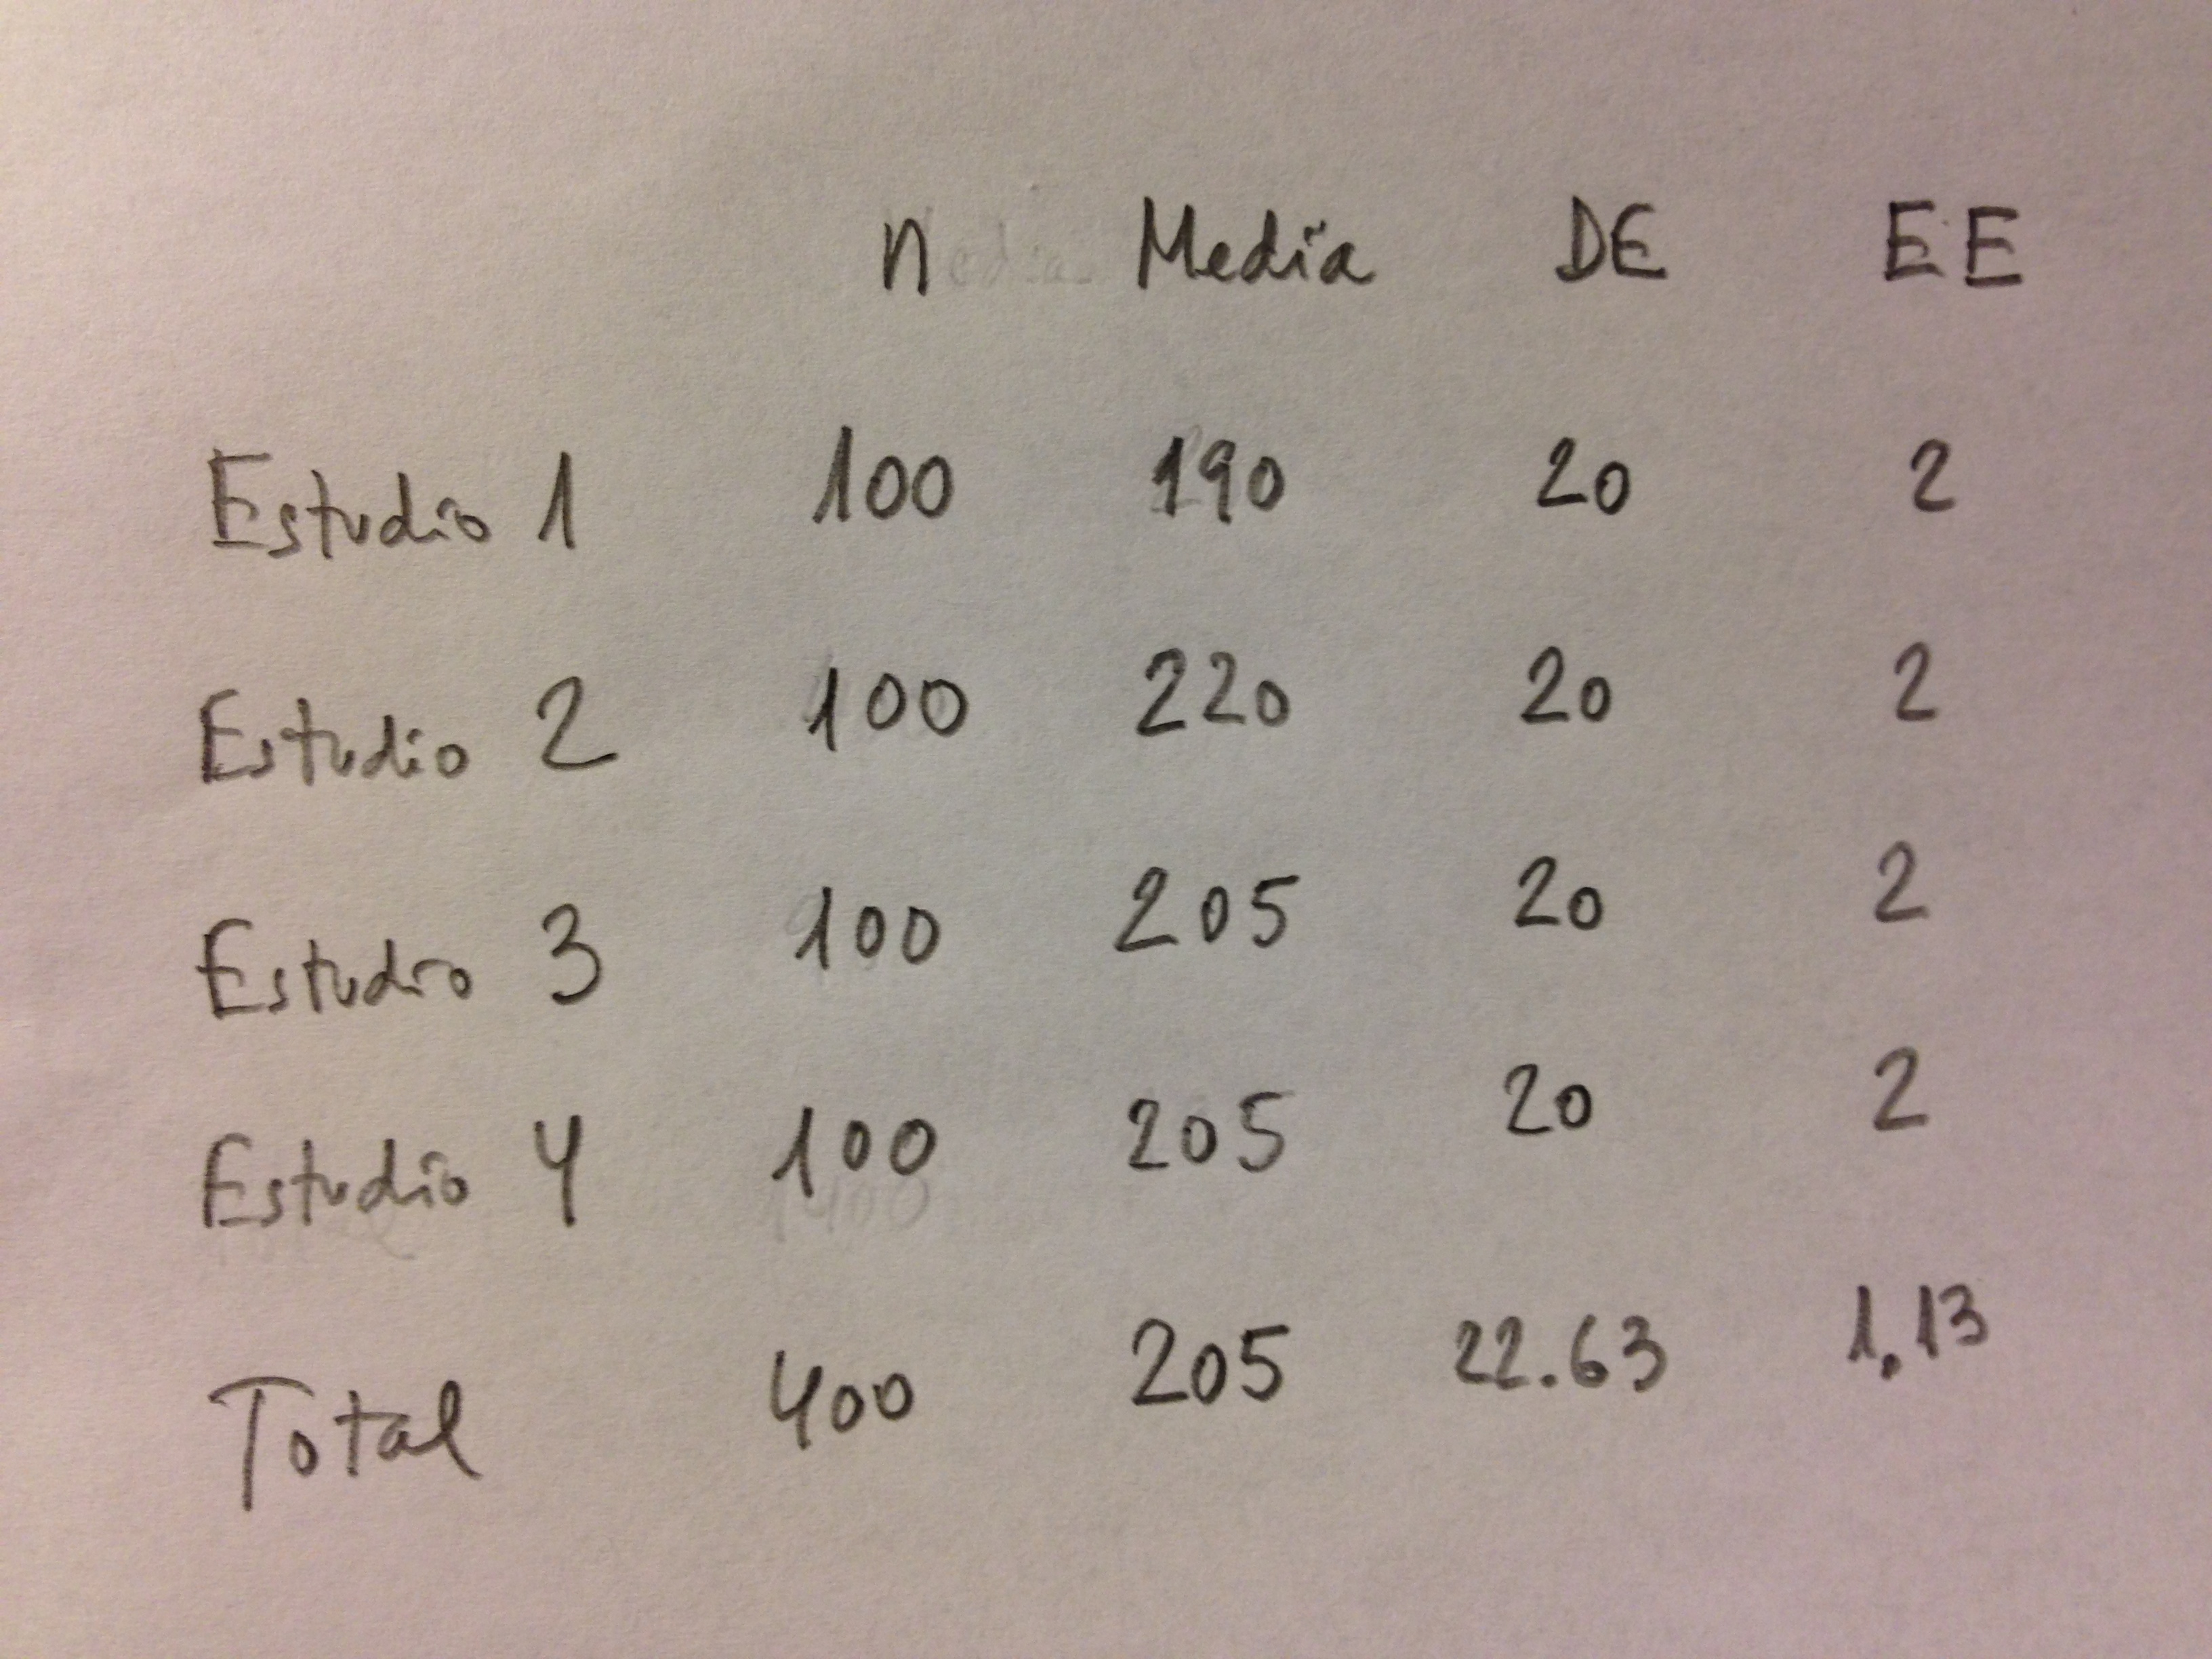 n Media DE EE
Estudio 1 100 190 20 2
Estudio 2 100 220 20 2
Estudio 3 100 205 20 2
Estudio 4 100 205 20 2
Total 400 205 22.63 1.13